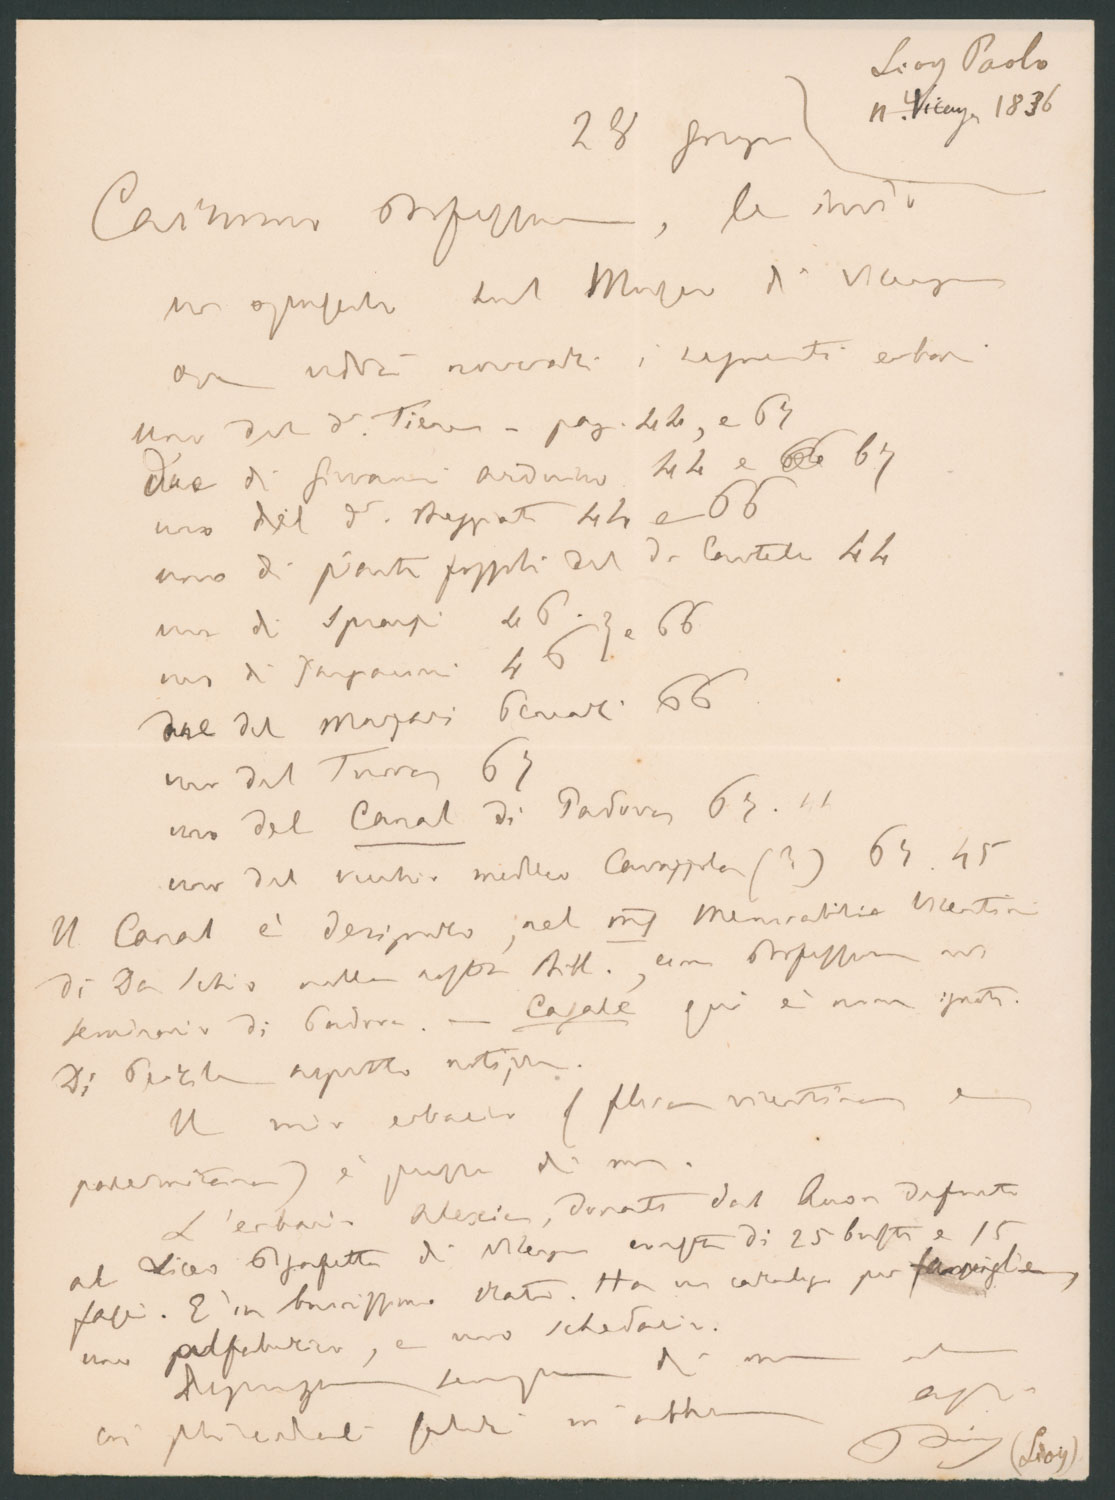 Lioy Paolo
n. Vicenza 1836
28 giugno
Carissimo Professore, le invio
un opuscolo sul Museo di Vicenza
ove vedrà novverati i seguenti erbari
uno del dr. Tiene - pag. 44, e 67
due di Giovanni Arduino 44 e 67
uno del dr. 44 e 66
uno di piante fossili del Dr 44
uno di 46. } e 66
uno di 46
due del Marzari Pencati 66
uno del Turra 67
uno del Canal di Padova 67. 11
uno del vecchio medico (?) 67. 45
Il Canal è designato, nel ms Memorabilia Vicentini
di Da Schio nella nostra Bibl., come Professore nel
seminario di Padova. — Casale qui è nome ignoto.
Di aspetto notizia.
Il mio erbario (flora vicentina e
) è presso di me.
L'erbario, donato dal defunto
al Liceo Pigafetta di Vicenza consta di 25 buste e 15
fasci. È in buonissimo stato. Ha un catalogo per famiglie,
uno alfabetico, e uno schedario.
sempre di me
coi più cordiali saluti m'abbia aff.
(Lioy)